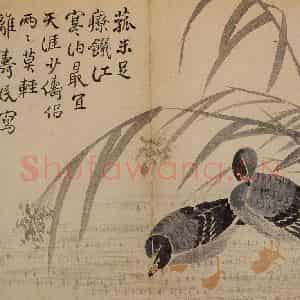 菰米足
療饑江
寒泊最宜
天涯少儔侶
兩〻莫輕
離 壽民寫
Shufawang.CN